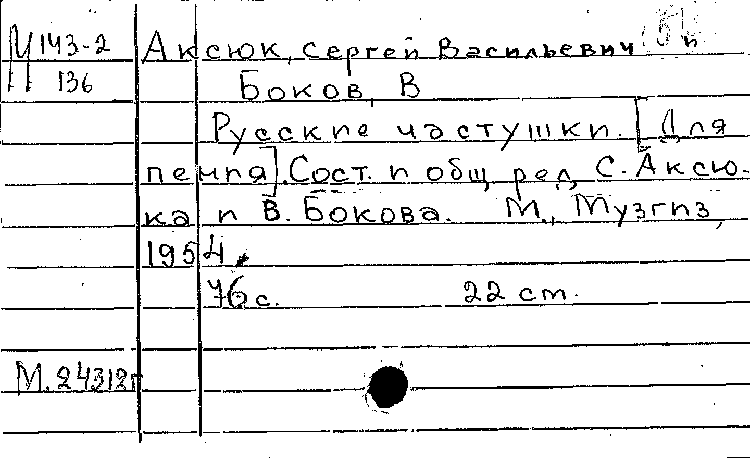 Ц 143-2 Аксюк, Сергей Васильевич
136 Боков, В
Русские частушки. [Для
пения]. Сост. и общ. ред. С. Аксю-
ка и В. Бокова. М., Музгиз,
1954.
76 с. 22 cm.
М. 24312г